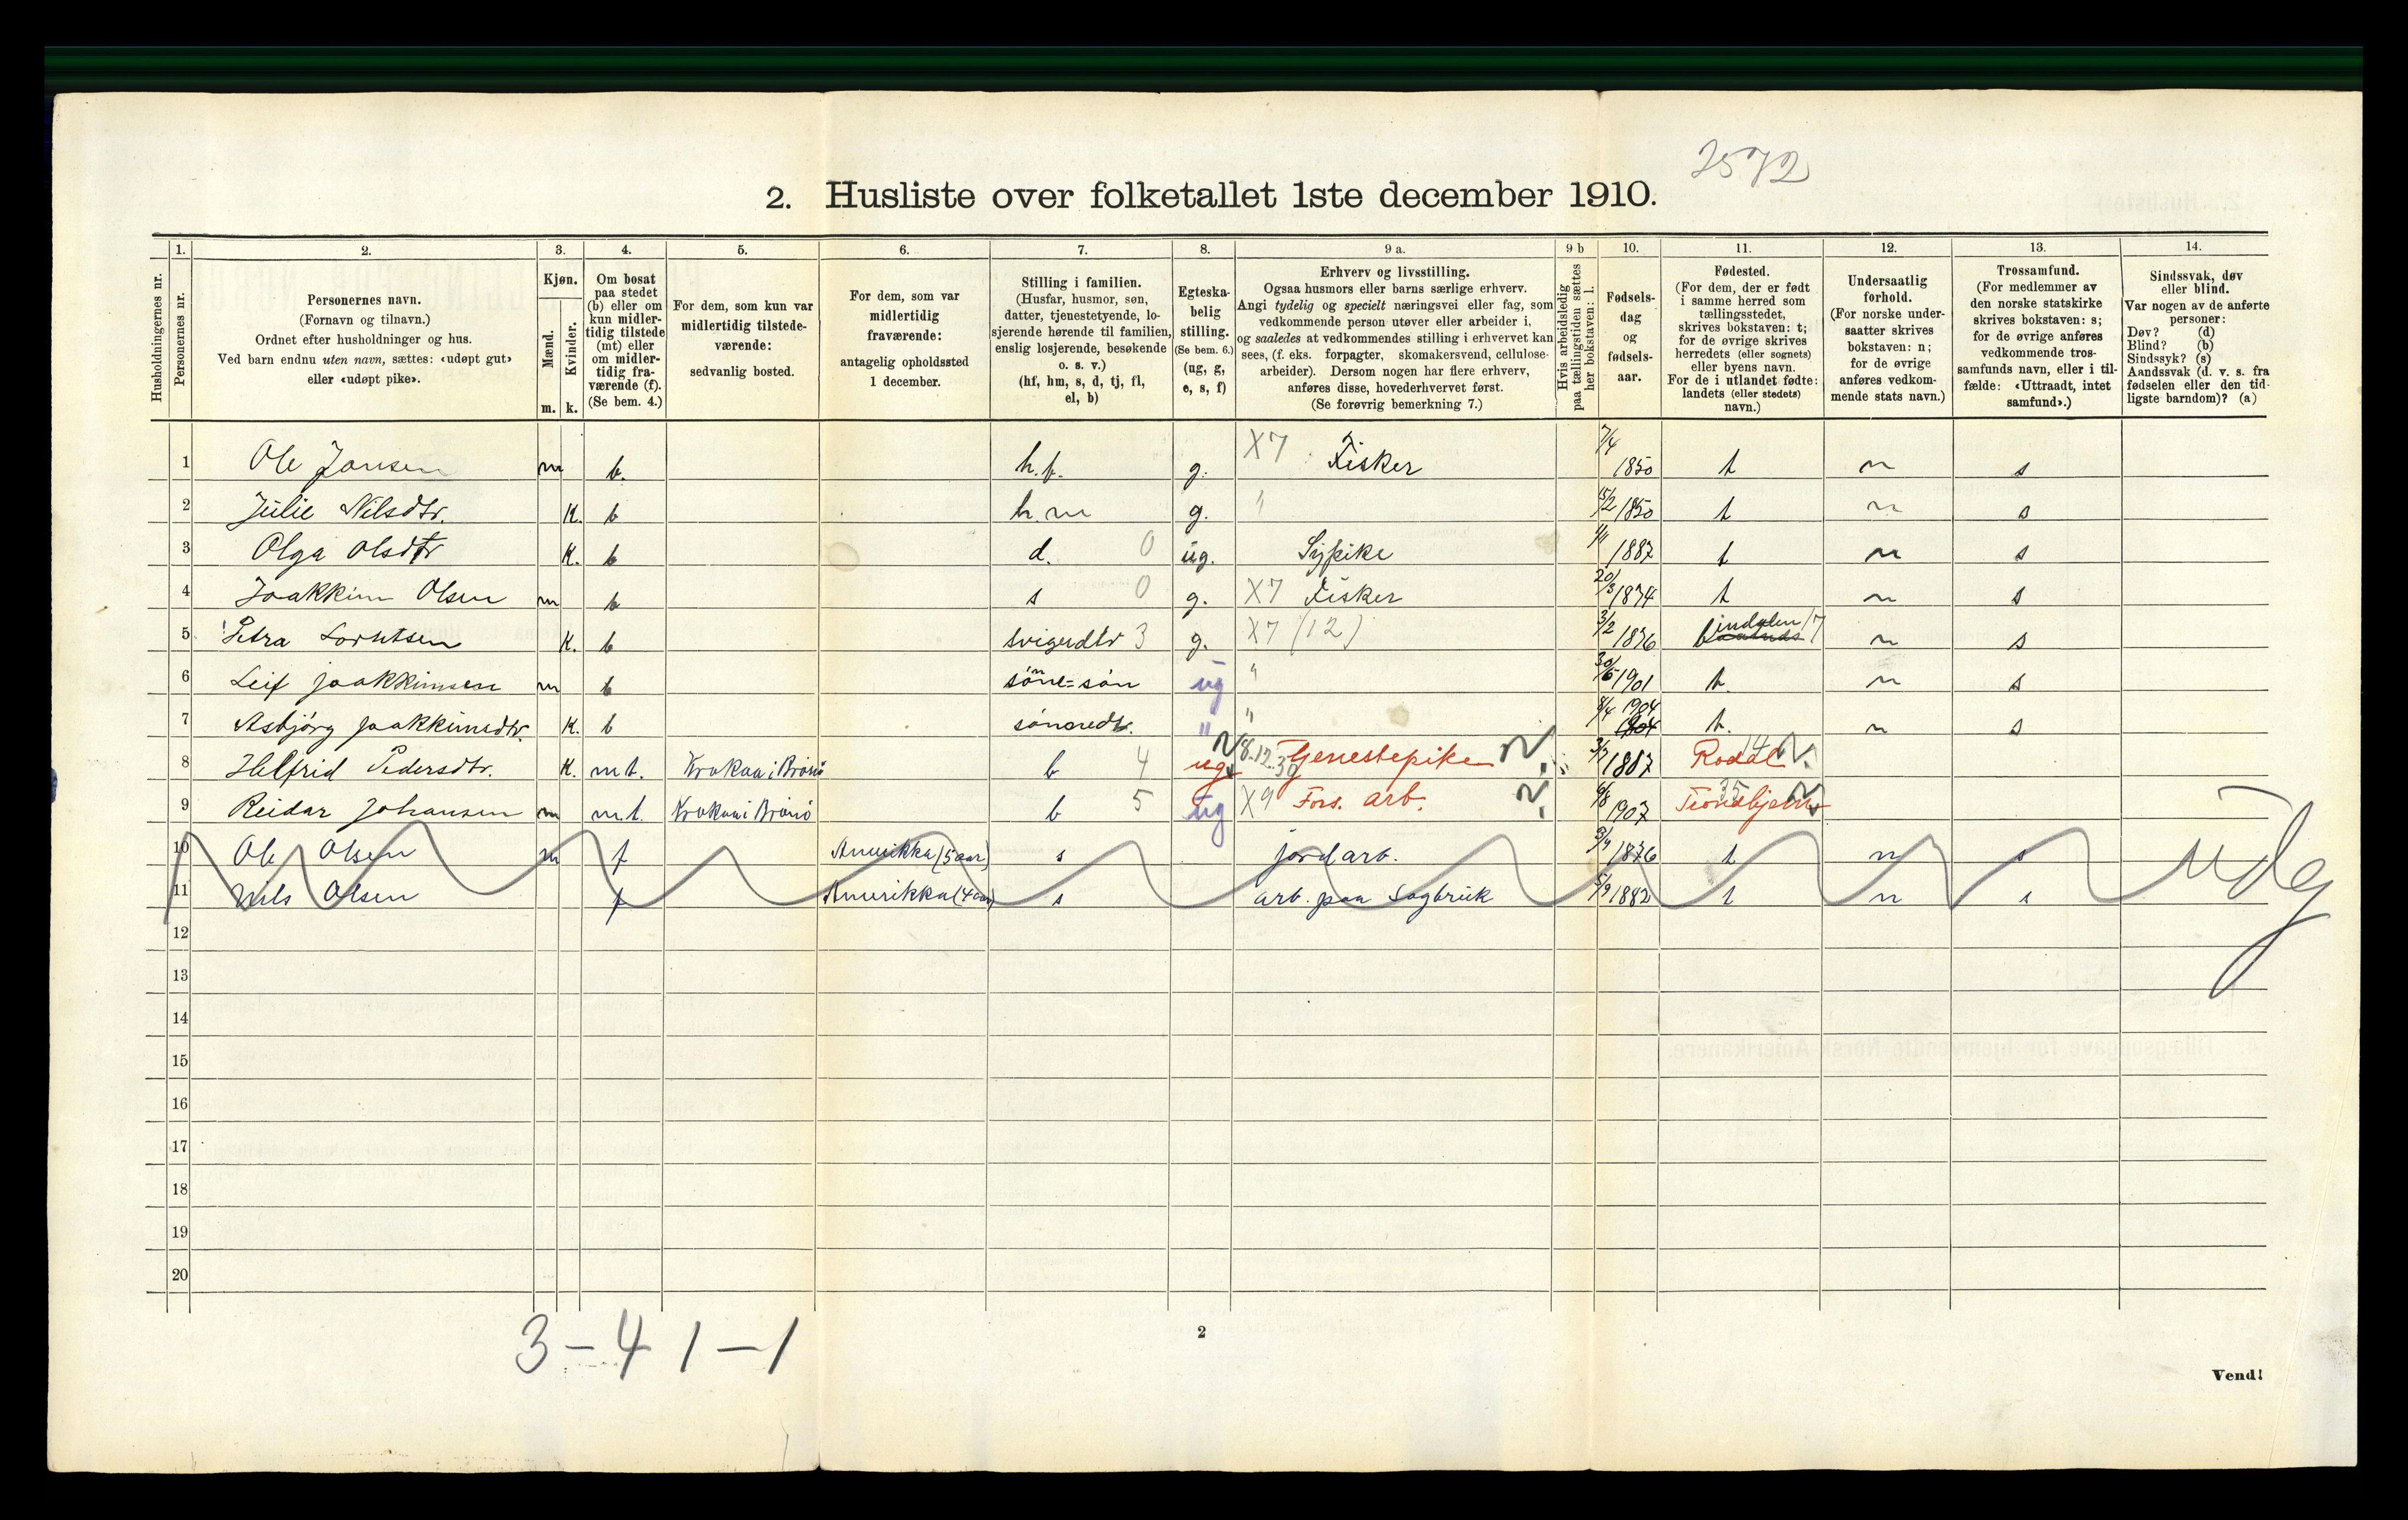 2572
2. Husliste over folketallet 1ste december 1910.
Husholdningernes nr.
1. Personernes nr.
2. Personernes navn. (Fornavn og tilnavn.) Ordnet efter husholdninger og hus. Ved barn endnu uten navn, sættes: «udøpt gut» eller «udøpt pike».
3. Kjøn. Mænd. m. Kvinder. k.
4. Om bosat paa stedet (b) eller om kun midlertidig tilstede (mt) eller om midlertidig fraværende (f). (Se bem. 4.)
5. For dem, som kun var midlertidig tilstedeværende: sedvanlig bosted.
6. For dem, som var midlertidig fraværende: antagelig opholdssted 1 december.
7. Stilling i familien. (Husfar, husmor, søn, datter, tjenestetyende, losjerende hørende til familien, enslig losjerende, besøkende o. s. v.) (hf, hm, s, d, tj, fl, el, b)
8. Egteskabelig stilling. (Se bem. 6.) (ug, g, e, s, f)
9 a. Erhverv og livsstilling. Ogsaa husmors eller barns særlige erhverv. Angi tydelig og specielt næringsvei eller fag, som vedkommende person utøver eller arbeider i, og saaledes at vedkommendes stilling i erhvervet kan sees, (f. eks. forpagter, skomakersvend, cellulosearbeider). Dersom nogen har flere erhverv, anføres disse, hovederhvervet først. (Se forøvrig bemerkning 7.)
9 b Hvis arbeidsledig paa tællingstiden sættes her bokstaven: l.
10. Fødselsdag og fødselsaar.
11. Fødested. (For dem, der er født i samme herred som tællingsstedet, skrives bokstaven: t; for de øvrige skrives herredets (eller sognets) eller byens navn. For de i utlandet fødte: landets (eller stedets) navn.)
12. Undersaatlig forhold. (For norske undersaatter skrives bokstaven: n; for de øvrige anføres vedkommende stats navn.)
13. Trossamfund. (For medlemmer av den norske statskirke skrives bokstaven: s; for de øvrige anføres vedkommende trossamfunds navn, eller i tilfælde: «Uttraadt, intet samfund».)
14. Sindssvak, døv eller blind. Var nogen av de anførte personer: Døv? (d) Blind? (b) Sindssyk? (s) Aandssvak (d. v. s. fra fødselen eller den tidligste barndom)? (a)
1 Ole Jansen m b. h.f. g. X7 Fisker 7/4 1850 t n s
2 Julie Nilsdtr. K. b h.m g. " 15/2 1850 t n s
3 Olga Olsdtr K. b d. 0 ug. Sypike 1887 t n s
4 Joakkim Olsen m b s 0 g. X7 Fisker 20/3 1874 t n s
5 Petra Lorntsen K. b svigerdtr 3 g. X7 (12) 3/2 1876 bindalen 17 n s
6 Leif joakkimsen m b sönne=sön ug " 30/5 1901 t. n s
7 Asbjörg joakkimsdtr. K. b sönnedtr. " " 8/4 1904 t. n s
8 Helfrid Pedersdtr. K. m t. Krokaa i Brönö b 4 ug 8.12.30 Tjenestepike 3/7 1887 Rodal
9 Reidar Johansen m m.t. Krokaa i Brönö b 5 ug X9 Fors. arb. 6/8 1907 35
10 Ole Olsen m f Amerikka (5 aar) s jord arb. 3/9 1876 t n s
11 Nils Olsen f Amerikka (4 aar) s arb. paa Sagbruk 5/9 1882 t n s
udg
12
13
14
15
16
17
18
19
20
3 – 4 1 – 1
2
Vend!